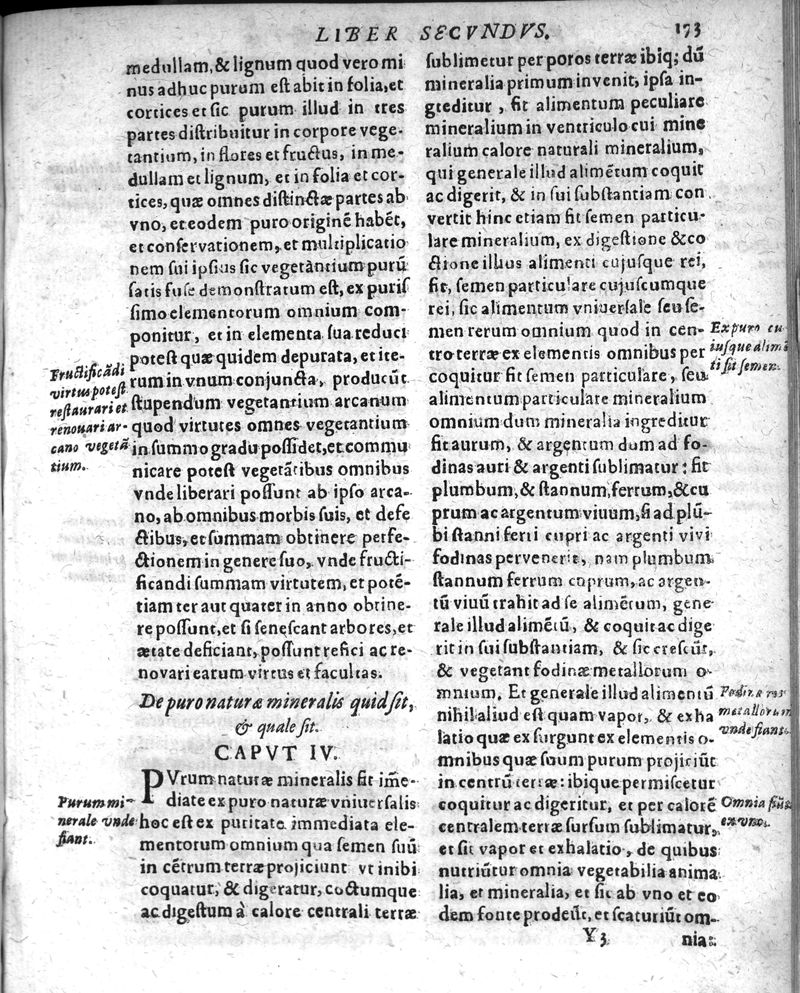 LIBER SECVNDVS. 173
medullam, & lignum quod vero mi
nus adhuc purum est abit in folia, et
cortices et sic purum illud in tres
partes distribuitur in corpore vege-
tantium, in flores et fructus, in me-
dullam et lignum, et in folia et cor-
tices, quæ omnes distinctæ partes ab
vno, et eodem puro originẽ habẽt,
et conservationem, et multiplicatio
nem sui ipsius sic vegetantium purũ
satis fuse demonstratum est, ex puris
simo elementorum omnium com-
ponitur, et in elementa sua reduci
potest quæ quidem depurata, et ite-
rum in vnum conjuncta, producũt
stupendum vegetantium arcanum
quod virtutes omnes vegetantium
in summo gradu possidet, et commu
nicare potest vegetãtibus omnibus
vnde liberari possunt ab ipso arca-
no, ab omnibus morbis suis, et defe
ctibus, et summam obtinere perfe-
ctionem in genere suo, vnde fructi-
ficandi summam virtutem, et potẽ-
tiam ter aut quater in anno obtine-
re possunt, et si senescant arbores, et
ætate deficiant, possunt refici ac re-
novari earum virtus et facultas.
Fructificãdi
virtus potest
restaurari et
renouari ar-
cano vegetã
tium.
De puro naturæ mineralis quid sit,
& quale sit.
CAPVT IV.
PVrum naturæ mineralis fit imẽ-
diate ex puro naturæ vniuersalis
hoc est ex puritate immediata ele-
mentorum omnium qua semen suũ
in cẽtrum terræ projiciunt vt inibi
coquatur, & digeratur, coctumque
ac digestum à calore centrali terræ
Purum mi-
nerale vnde
fiant.
sublimetur per poros terræ ibiq; dũ
mineralia primum invenit, ipsa in-
greditur, fit alimentum peculiare
mineralium in ventriculo cui mine
ralium calore naturali mineralium,
qui generale illud alimẽtum coquit
ac digerit, & in sui substantiam con
vertit hinc etiam fit semen particu-
lare mineralium, ex digestione & co
ctione illius alimenti cujusque rei,
fit, semen particulare cujuscumque
rei, sic alimentum vniuersale seu se-
men rerum omnium quod in cen-
tro terræ ex elementis omnibus per
coquitur fit semen particulare, seu
alimentum particulare mineralium
omnium dum mineralia ingreditur
fit aurum, & argentum dum ad fo-
dinas auri & argenti sublimatur: fit
plumbum, & stannum, ferrum, & cu
prum ac argentum viuum, si ad plũ-
bi stanni ferri cupri ac argenti vivi
fodinas pervenerit, nam plumbum
stannum ferrum cuprum, ac argen-
tũ viuũ trahit ad se alimẽtum, gene
rale illud alimẽtũ, & coquit ac dige
rit in sui substantiam, & sic crescũt,
& vegetant fodinæ metallorum o-
mnium. Et generale illud alimentũ
nihil aliud est quam vapor, & exha
latio quæ exsurgunt ex elementis o-
mnibus quæ suum purum projiciũt
in centrũ terræ: ibique permiscetur
coquitur ac digeritur, et per calorẽ
centralem terræ sursum sublimatur,
et fit vapor et exhalatio, de quibus
nutriũtur omnia vegetabilia anima
lia, et mineralia, et sic ab vno et eo
dem fonte prodeũt, et scaturiũt om-
Y 3 nia:
Ex puro cu
iusque alimẽ
ti fit semen.
Fodinæ
metallorum
vnde fiant.
Omnia fiũt
ex vno.